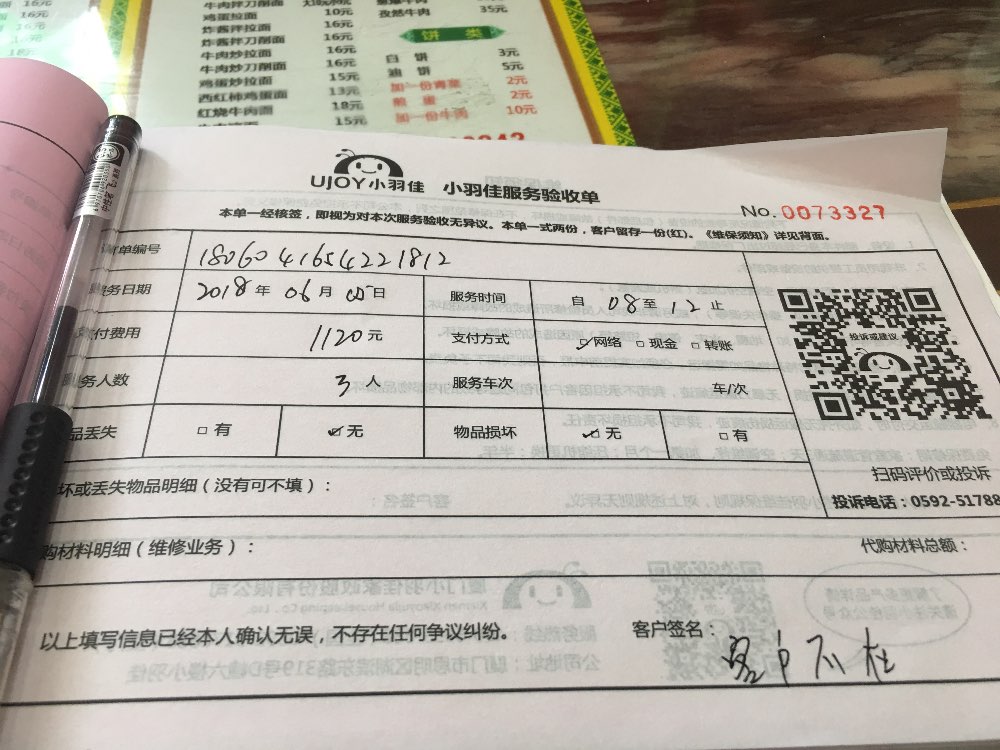 16元
牛肉拌刀削面
鸡蛋拉面 10元
孜然牛肉 35元
炸酱拌刀削面 16元
牛肉炒拉面 16元
饼 类
牛肉炒刀削面 16元
白 饼 3元
鸡蛋炒拉面 15元
油 饼 5元
西红柿鸡蛋面 13元
加一份青菜 2元
红烧牛肉面 18元
煎 蛋 2元
15元
加一份牛肉 10元
UJOY小羽佳 小羽佳服务验收单
No. 0073327
本单一经核签，即视为对本次服务验收无异议。本单一式两份，客户留存一份(红)。《维保须知》详见背面。
单编号 1806041654221812
务日期 2018年 06月 05日 服务时间 自 08 至 12 止
付费用 1120元 支付方式 ☑网络 □现金 □转账
务人数 3人 服务车次 车/次
品丢失 □有 ☑无 物品损坏 ☑无 □有
投诉或建议
扫码评价或投诉
投诉电话：0592-51788
坏或丢失物品明细（没有可不填）：
购材料明细（维修业务）： 代购材料总额：
以上填写信息已经本人确认无误，不存在任何争议纠纷。 客户签名： 客户不在